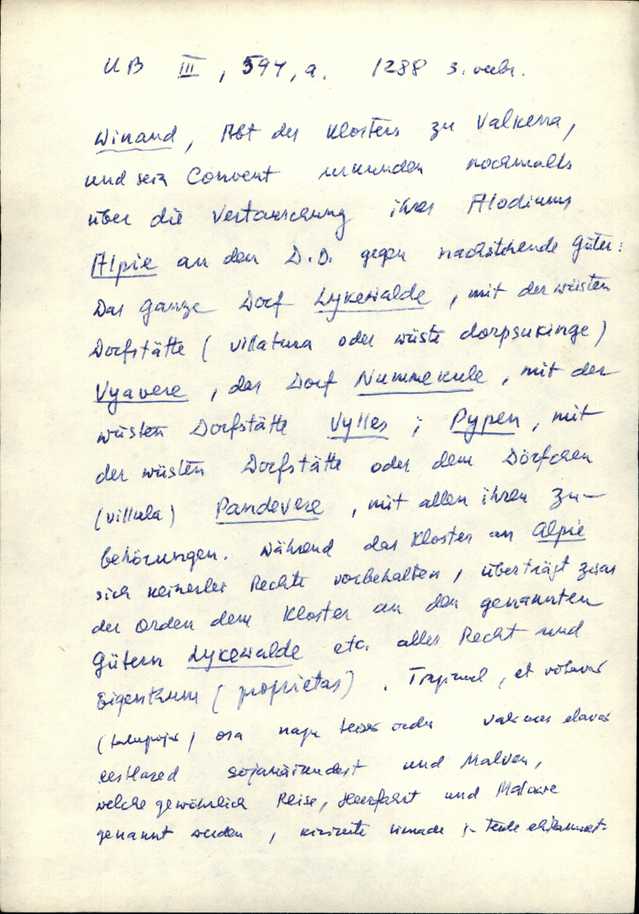 UB III, 594, a. 1288 3. vebr.
Winand, Abt des Klosters zu Valkena,
und sein Convent urkunden nochmals
über die Vertauschung ihres Allodiums
Alpie an den D.O. gegen nachstehende Güter:
Das ganze Dorf Lykewalde, mit der wüsten
Dorfstätte (villatura oder wüste dorpsukinge)
Vyavere, das Dorf Nummekule, mit der
wüsten Dorfstätte Vylles; Pypen, mit
der wüsten Dorfstätte oder dem Dörfchen
(villula) Pandevere, mit allen ihren Zu-
behörungen. Während das Kloster an Alpie
sich keinerlei Rechte vorbehalten, überträgt zwar
der Orden dem Kloster an den genannten
Gütern Lykewalde etc. alles Recht und
Eigenthum (proprietas). et võtavad
osa nagu ordu elavad
eestlased sõjakäikudest und Malven,
welche gewöhnlich Reise, Heerfahrt und Malwe
genannt werden, nimade